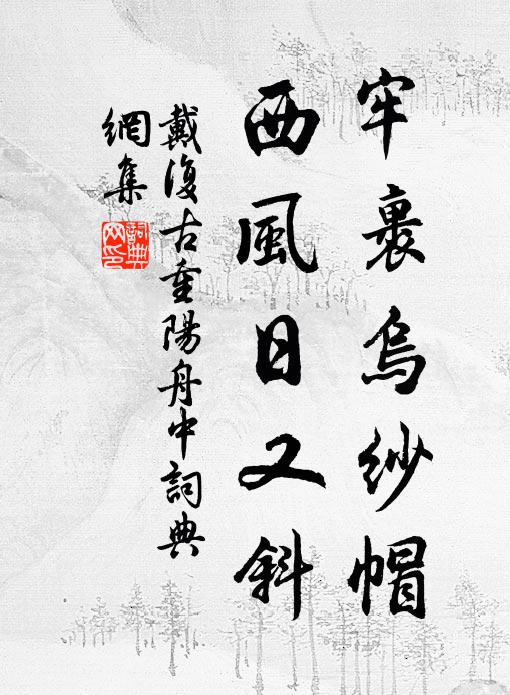 牢裹烏紗帽
西風日又斜
戴復古重陽舟中詞典
網集
詞典
网印